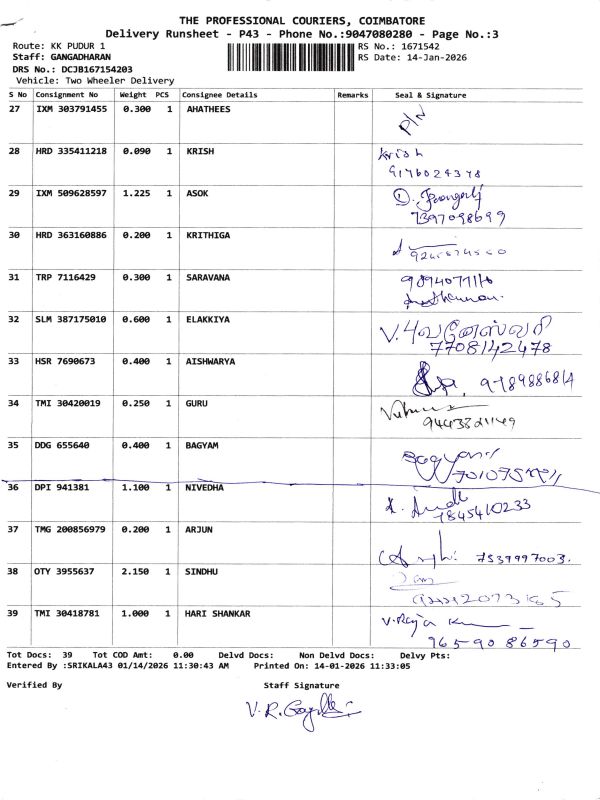 THE PROFESSIONAL COURIERS, COIMBATORE
Delivery Runsheet - P43 - Phone No.:9047080280 - Page No.:3
Route: KK PUDUR 1 RS No.: 1671542
Staff: GANGADHARAN RS Date: 14-Jan-2026
DRS No.: DCJB167154203
Vehicle: Two Wheeler Delivery
S No Consignment No Weight PCS Consignee Details Remarks Seal & Signature
27 IXM 303791455 0.300 1 AHATHEES
28 HRD 335411218 0.090 1 KRISH Krish
9176024378
29 IXM 509628597 1.225 1 ASOK
7397098699
30 HRD 363160886 0.200 1 KRITHIGA
31 TRP 7116429 0.300 1 SARAVANA
32 SLM 387175010 0.600 1 ELAKKIYA V. புவனேஸ்வரி
7708142478
33 HSR 7690673 0.400 1 AISHWARYA
34 TMI 30420019 0.250 1 GURU
9443321149
35 DDG 655640 0.400 1 BAGYAM Bagyam
36 DPI 941381 1.100 1 NIVEDHA
7845410233
37 TMG 200856979 0.200 1 ARJUN
7539997003.
38 OTY 3955637 2.150 1 SINDHU
39 TMI 30418781 1.000 1 HARI SHANKAR V. Raja
96590 86590
Tot Docs: 39 Tot COD Amt: 0.00 Delvd Docs: Non Delvd Docs: Delvy Pts:
Entered By :SRIKALA43 01/14/2026 11:30:43 AM Printed On: 14-01-2026 11:33:05
Verified By Staff Signature
V. R.